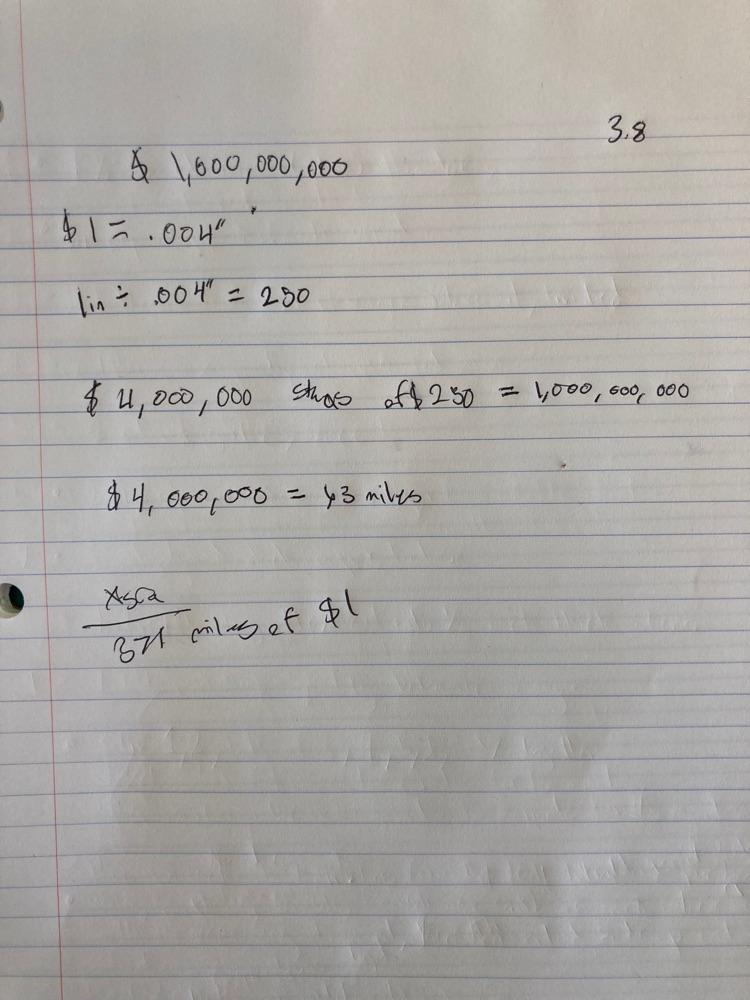 3.8
$ 1,000,000,000
$1 = .004"
1in ÷ .004" = 250
$ 4,000,000 of $ 250 = 1,000,000,000
$ 4,000,000 = 63 miles
miles of $1